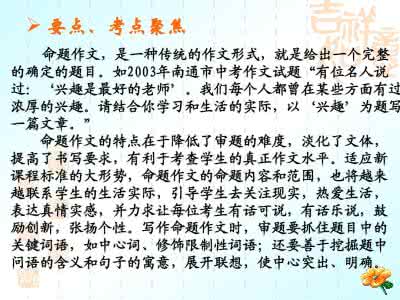 要点、考点聚焦
命题作文，是一种传统的作文形式，就是给出一个完整
的确定的题目。如2003年南通市中考作文试题“有位名人说
过：‘兴趣是最好的老师’。我们每个人都曾在某些方面有过
浓厚的兴趣。请结合你学习和生活的实际，以‘兴趣’为题写
一篇文章。”
命题作文的特点在于降低了审题的难度，淡化了文体，
提高了书写要求，有利于考查学生的真正作文水平。适应新
课程标准的大形势，命题作文的命题内容和范围，也将越来
越联系学生的生活实际，引导学生去关注现实，热爱生活，
表达真情实感，并力求让每位考生有话可说，有话乐说，鼓
励创新，张扬个性。写作命题作文时，审题要抓住题目中的
关键词语，如中心词、修饰限制性词语；还要善于挖掘题中
问语的含义和句子的寓意，展开联想，使中心突出、明确。